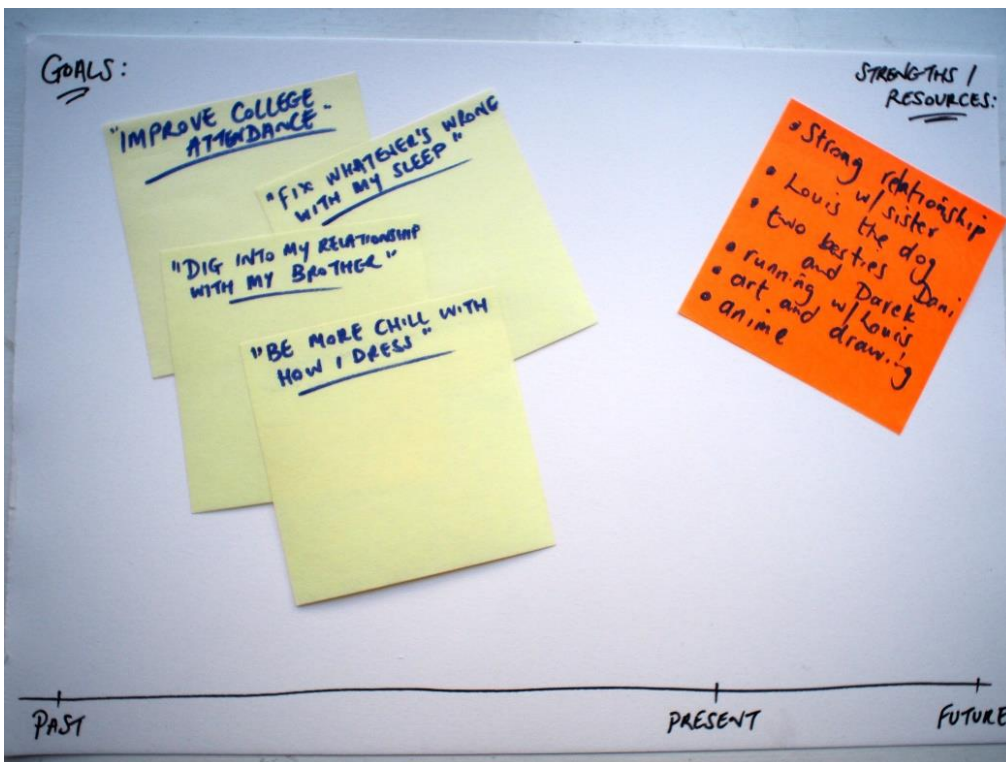 GOALS:
"IMPROVE COLLEGE
ATTENDANCE.
"FIX WHATEVER'S WRONG
WITH MY SLEEP"
"DIG INTO MY RELATIONSHIP
WITH MY BROTHER"
"BE MORE CHILL WITH
HOW I DRESS"
STRENGTHS /
RESOURCES:
• Strong relationship
w/ sister
• Louis the dog
• two besties Dani
and Darek
• running w/ Louis
• art and drawing
• anime
PAST
PRESENT
FUTURE